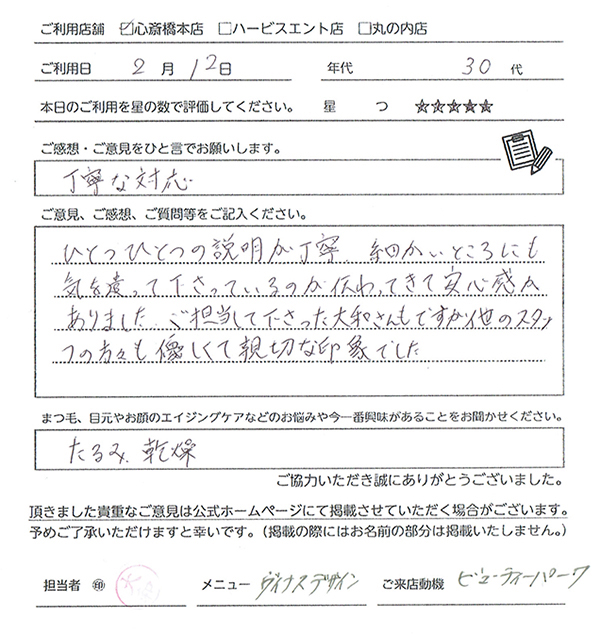 ご利用店舗 ☑心斎橋本店 □ハービスエント店 □丸の内店
ご利用日 2 月 12 日 年代 30 代
本日のご利用を星の数で評価してください。 星 つ ★★★★★
ご感想・ご意見をひと言でお願いします。
丁寧な対応
ご意見、ご感想、ご質問等をご記入ください。
ひとつひとつの説明が丁寧、細かいところにも
気を遣って下さっているのが伝わってきて安心感が
ありました。ご担当して下さった大和さんもですが他のスタッ
フの方々も優しくて親切な印象でした
まつ毛、目元やお顔のエイジングケアなどのお悩みや今一番興味があることをお聞かせください。
たるみ、乾燥
ご協力いただき誠にありがとうございました。
頂きました貴重なご意見は公式ホームページにて掲載させていただく場合がございます。
予めご了承いただけますと幸いです。(掲載の際にはお名前の部分は掲載いたしません。)
担当者 ㊞ メニュー ヴィナスデザイン ご来店動機 ビューティーパーク